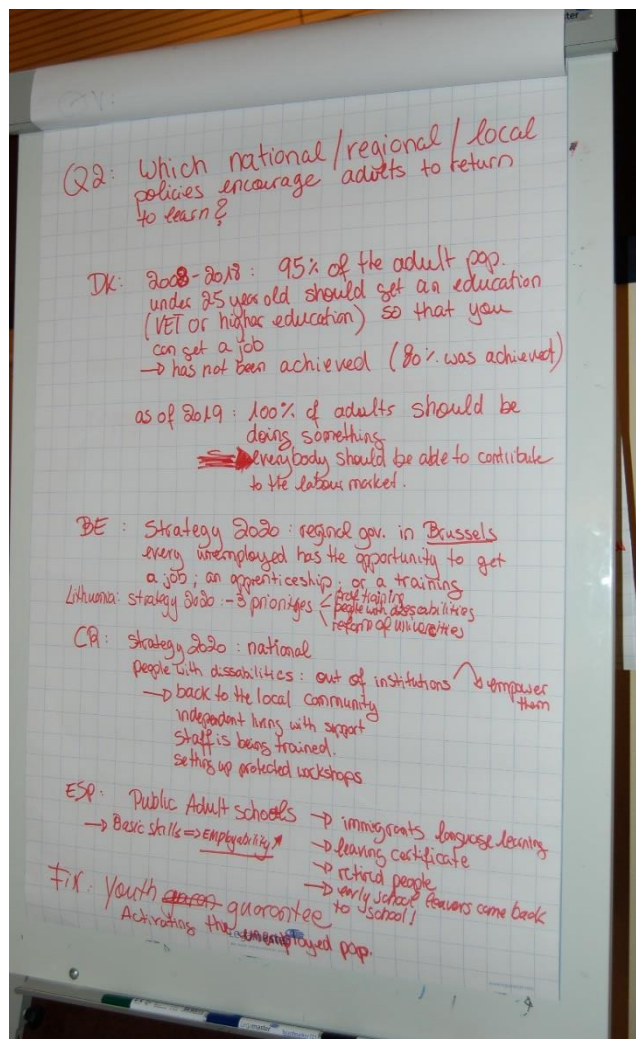 Q2: Which national/regional/local
policies encourage adults to return
to learn?
DK: 2008-2018: 95% of the adult pop.
under 25 year old should get an education
(VET or higher education) so that you
can get a job
→ has not been achieved (80% was achieved)
as of 2019: 100% of adults should be
doing something
everybody should be able to contribute
to the labour market.
BE: Strategy 2020: regional gov. in Brussels
every unemployed has the opportunity to get
a job; an apprenticeship; or a training
Lithuania: strategy 2020: -3 priorities
prof training
people with dissabilities
reform of universities
CR: strategy 2020: national
people with dissabilities: out of institutions → empower
them
→ back to the local community
independent living with support
staff is being trained.
setting up protected workshops
ESP: Public Adult schools → immigrants language learning
→ Basic skills ⇒ Employability → leaving certificate
→ retired people
→ early school leavers come back
to school!
Fin: Youth guarantee
Activating the unemployed pop.